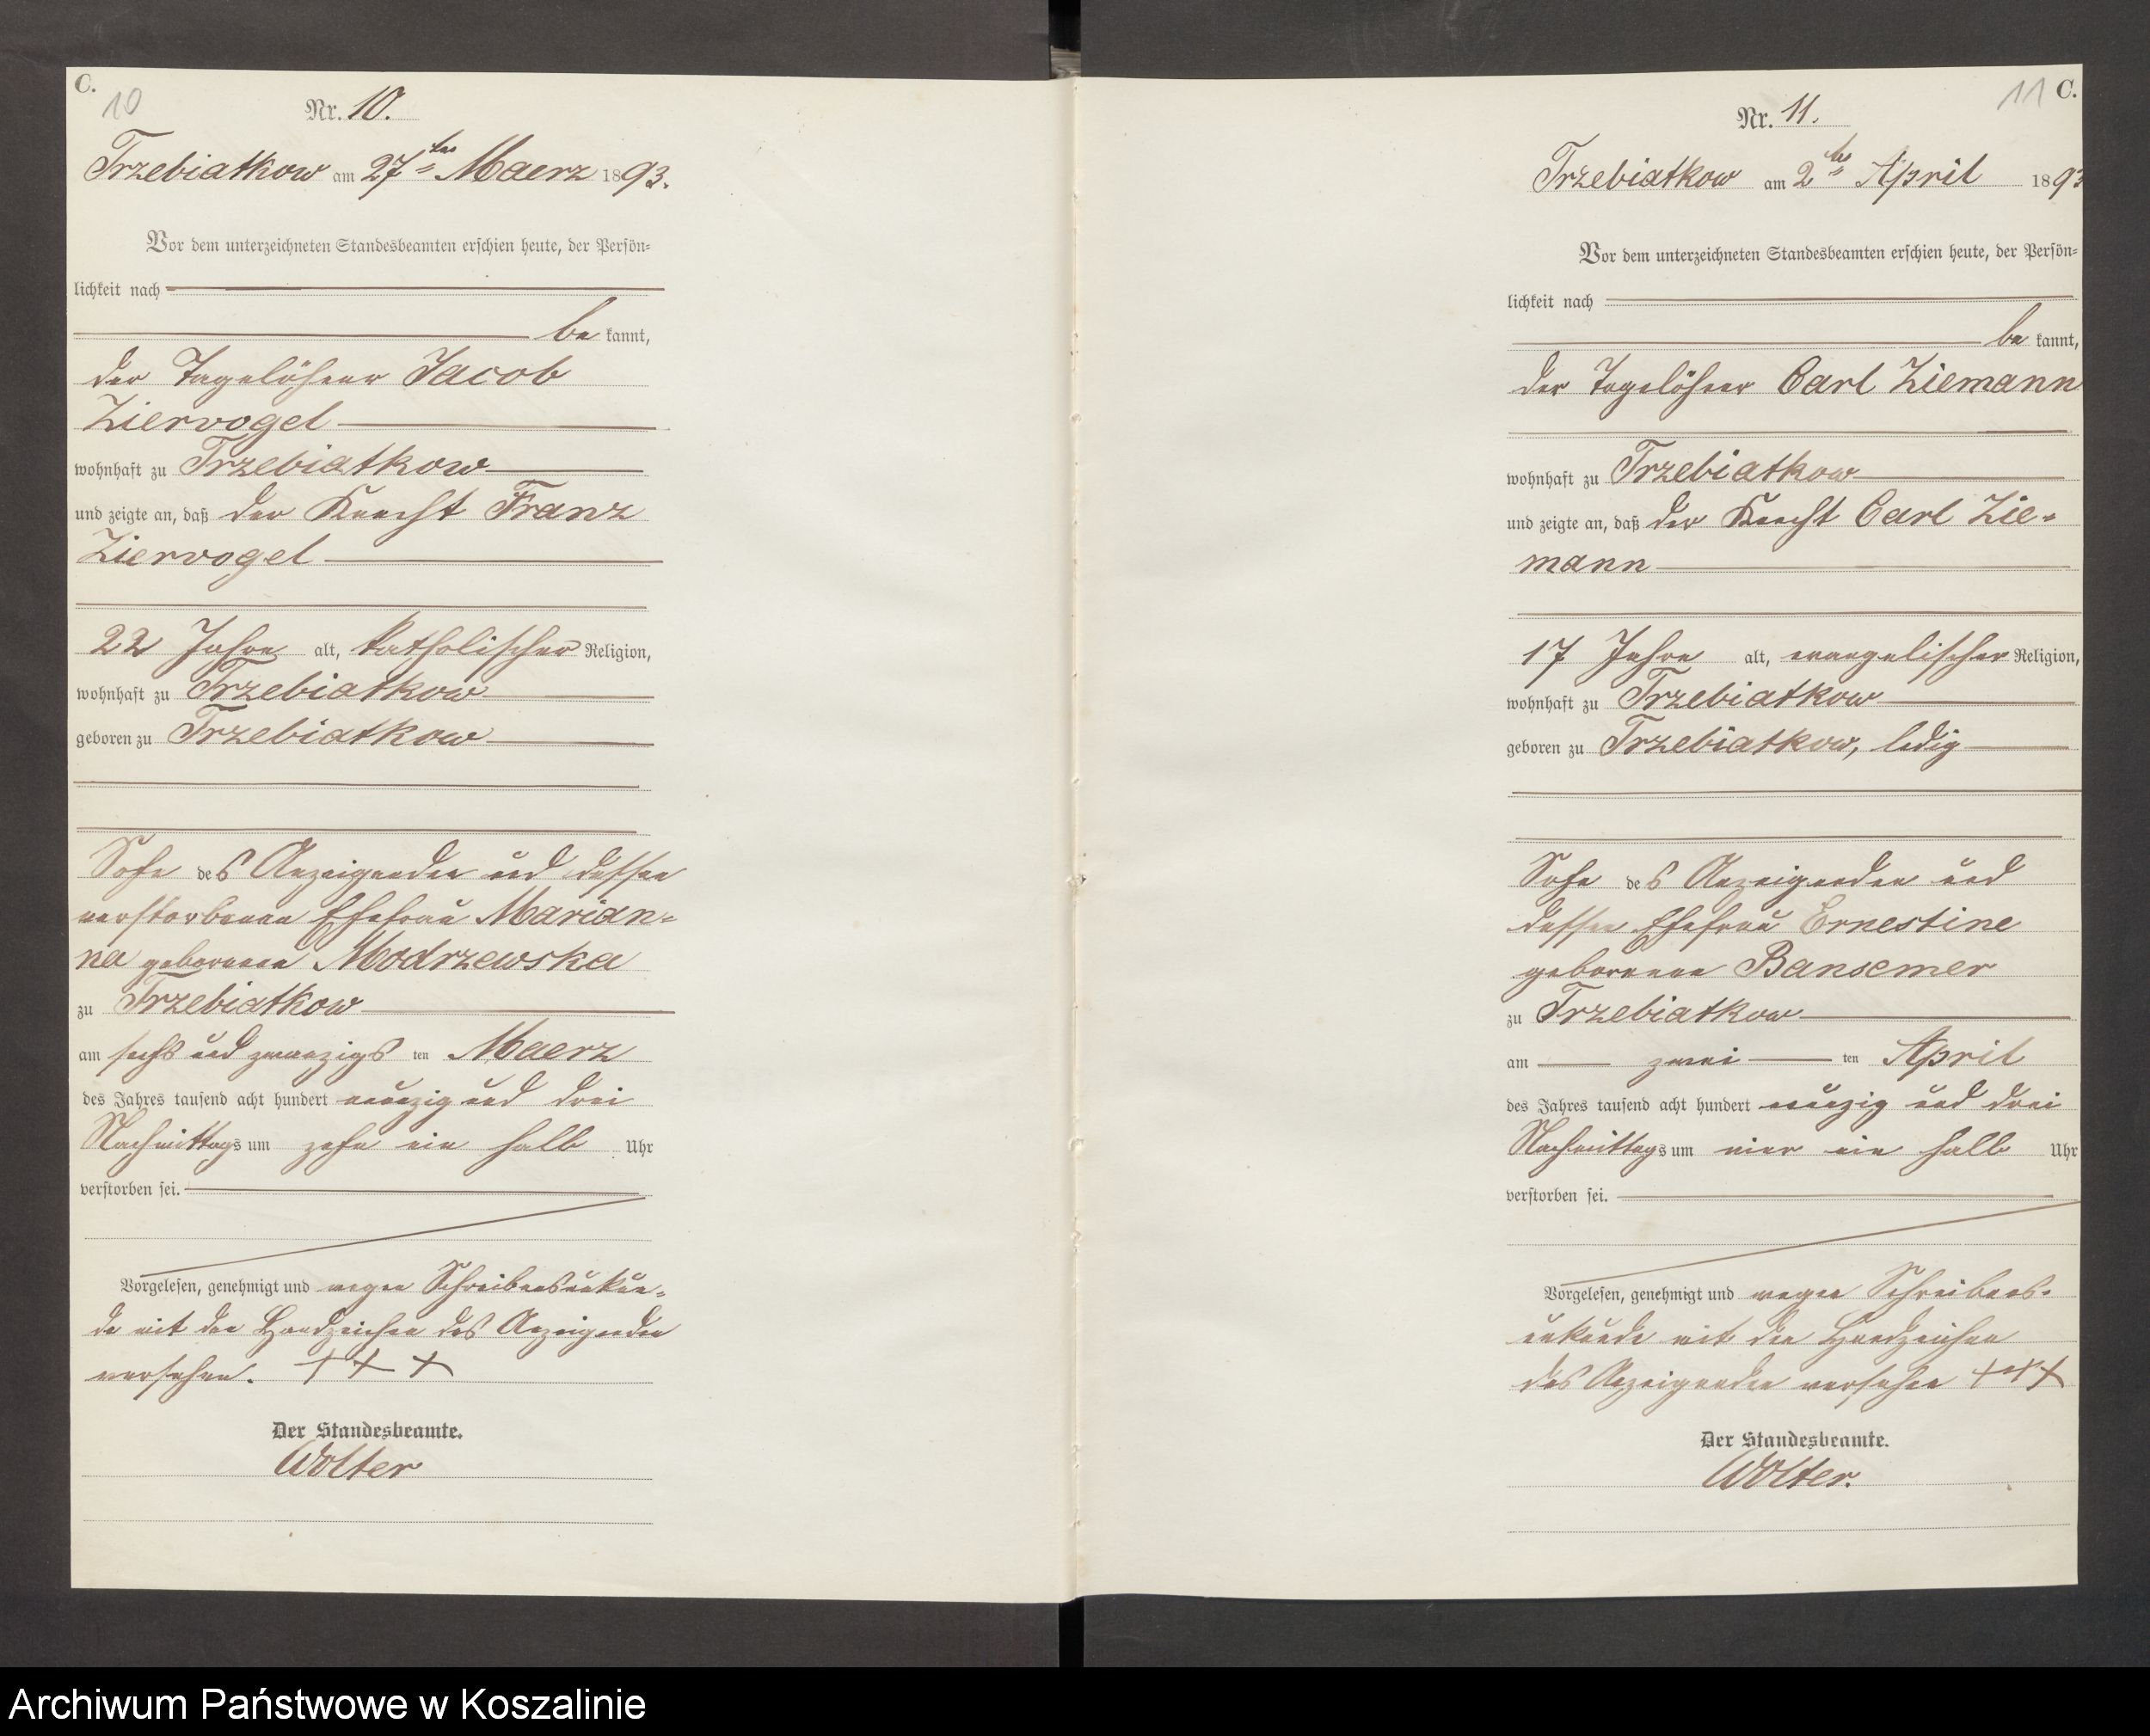 C.
10
Nr. 10.
Trzebiatkow am 27ten Maerz 1893.
Vor dem unterzeichneten Standesbeamten erschien heute, der Persön-
lichkeit nach
be kannt,
der Tagelöhner Jacob
Ziervogel
wohnhaft zu Trzebiatkow
und zeigte an, daß der Knecht Franz
Ziervogel
22 Jahre alt, katholischer Religion,
wohnhaft zu Trzebiatkow
geboren zu Trzebiatkow
Sohn des Anzeigenden und dessen
verstorbenen Ehefrau Marian-
na geborenen Modrzewska
zu Trzebiatkow
am sechs und zwanzigs ten Maerz
des Jahres tausend acht hundert neunzig und drei
Nachmittags um zehn ein halb Uhr
verstorben sei.
Vorgelesen, genehmigt und wegen Schreibensunkun-
de mit den Handzeichen des Anzeigenden
versehen. + + +
Der Standesbeamte.
Wolter
11 C.
Nr. 11.
Trzebiatkow am 2ten April 1893
Vor dem unterzeichneten Standesbeamten erschien heute, der Persön-
lichkeit nach
be kannt,
der Tagelöhner Carl Ziemann
wohnhaft zu Trzebiatkow
und zeigte an, daß der Knecht Carl Zie-
mann
17 Jahre alt, evangelischer Religion,
wohnhaft zu Trzebiatkow
geboren zu Trzebiatkow, ledig
Sohn des Anzeigenden und
dessen Ehefrau Ernestine
geborenen Bansemer
zu Trzebiatkow
am zwei ten April
des Jahres tausend acht hundert neunzig und drei
Nachmittags um vier ein halb Uhr
verstorben sei.
Vorgelesen, genehmigt und wegen Schreibens-
unkunde mit den Handzeichen
des Anzeigenden versehen +++
Der Standesbeamte.
Wolter.
Archiwum Państwowe w Koszalinie